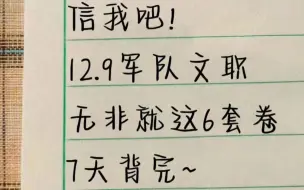 信我吧!
12.9军队文职
无非就这6套卷
7天背完~